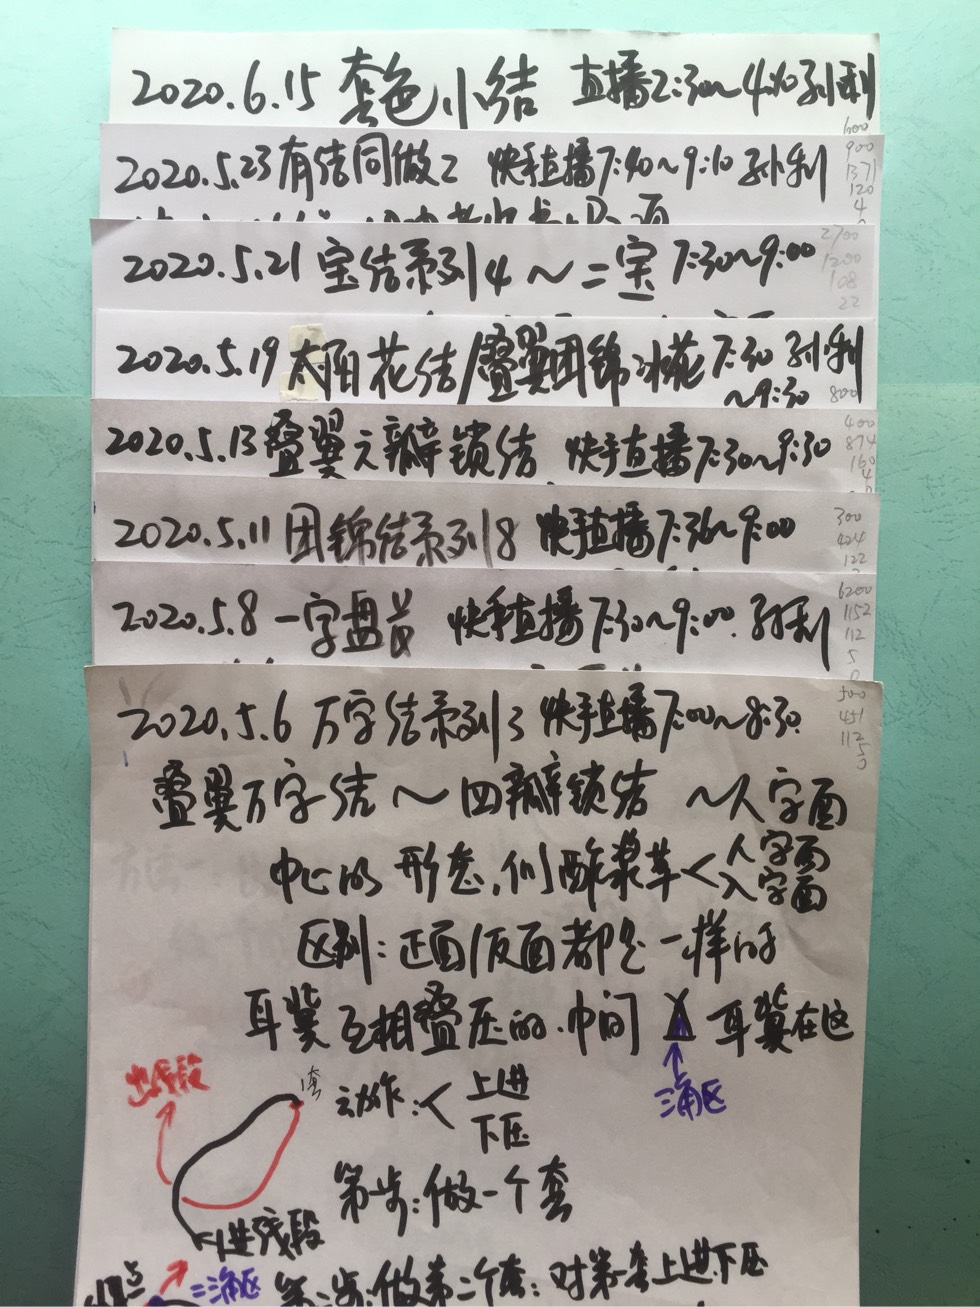 2020.6.15 套色小结 直播2:30~4:10 孙利
600
2020.5.23 有结同做2 快手直播7:40~9:10 孙利
900
1371
120
4
2020.5.21 宝结系列4~二宝 7:30~9:00
2700
1200
108
22
2020.5.19 太阳花结/叠翼团锦冰花 7:30 孙利
~9:30
800
2020.5.13 叠翼六瓣锁结 快手直播7:30~9:30
400
874
160
4
2020.5.11 团锦结系列8 快手直播7:36~9:00
300
404
122
2020.5.8 一字盘长 快手直播7:30~9:00. 孙利
6200
1152
112
5
0
2020.5.6 万字结系列3 快手直播7:00~8:30
500
451
112
5
0
叠翼万字结~四瓣锁结 ~人字面
中心的形态,似酢浆草<人字面
入字面
区别:正面/反面都是一样的
耳翼互相叠压的.中间 耳翼在这
三角区
出线段
套
动作:<上进
下压
第一步:做一个套
进线段
三角区
第二步:做第二个套:对第一套上进下压